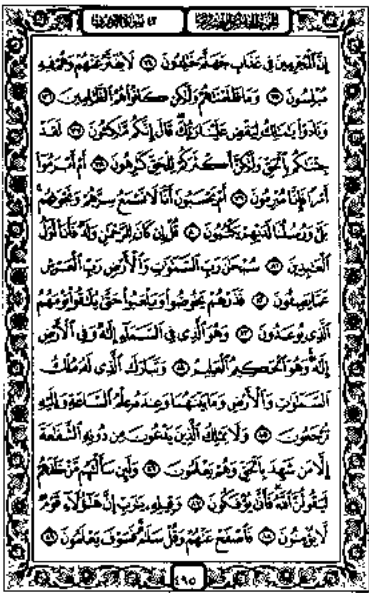 إِنَّ ٱلْمُجْرِمِينَ فِى عَذَابِ جَهَنَّمَ خَٰلِدُونَ ٧٤ لَا يُفَتَّرُ عَنْهُمْ وَهُمْ فِيهِ
مُبْلِسُونَ ٧٥ وَمَا ظَلَمْنَٰهُمْ وَلَٰكِن كَانُوا۟ هُمُ ٱلظَّٰلِمِينَ ٧٦
وَنَادَوْا۟ يَٰمَٰلِكُ لِيَقْضِ عَلَيْنَا رَبُّكَ قَالَ إِنَّكُم مَّٰكِثُونَ ٧٧ لَقَدْ
جِئْنَٰكُم بِٱلْحَقِّ وَلَٰكِنَّ أَكْثَرَكُمْ لِلْحَقِّ كَٰرِهُونَ ٧٨ أَمْ أَبْرَمُوٓا۟
أَمْرًا فَإِنَّا مُبْرِمُونَ ٧٩ أَمْ يَحْسَبُونَ أَنَّا لَا نَسْمَعُ سِرَّهُمْ وَنَجْوَىٰهُم
بَلَىٰ وَرُسُلُنَا لَدَيْهِمْ يَكْتُبُونَ ٨٠ قُلْ إِن كَانَ لِلرَّحْمَٰنِ وَلَدٌ فَأَنَا۠ أَوَّلُ
ٱلْعَٰبِدِينَ ٨١ سُبْحَٰنَ رَبِّ ٱلسَّمَٰوَٰتِ وَٱلْأَرْضِ رَبِّ ٱلْعَرْشِ
عَمَّا يَصِفُونَ ٨٢ فَذَرْهُمْ يَخُوضُوا۟ وَيَلْعَبُوا۟ حَتَّىٰ يُلَٰقُوا۟ يَوْمَهُمُ
ٱلَّذِى يُوعَدُونَ ٨٣ وَهُوَ ٱلَّذِى فِى ٱلسَّمَآءِ إِلَٰهٌ وَفِى ٱلْأَرْضِ
إِلَٰهٌ وَهُوَ ٱلْحَكِيمُ ٱلْعَلِيمُ ٨٤ وَتَبَارَكَ ٱلَّذِى لَهُۥ مُلْكُ
ٱلسَّمَٰوَٰتِ وَٱلْأَرْضِ وَمَا بَيْنَهُمَا وَعِندَهُۥ عِلْمُ ٱلسَّاعَةِ وَإِلَيْهِ
تُرْجَعُونَ ٨٥ وَلَا يَمْلِكُ ٱلَّذِينَ يَدْعُونَ مِن دُونِهِ ٱلشَّفَٰعَةَ
إِلَّا مَن شَهِدَ بِٱلْحَقِّ وَهُمْ يَعْلَمُونَ ٨٦ وَلَئِن سَأَلْتَهُم مَّنْ خَلَقَهُمْ
لَيَقُولُنَّ ٱللَّهُ فَأَنَّىٰ يُؤْفَكُونَ ٨٧ وَقِيلِهِۦ يَٰرَبِّ إِنَّ هَٰٓؤُلَآءِ قَوْمٌ
لَّا يُؤْمِنُونَ ٨٨ فَٱصْفَحْ عَنْهُمْ وَقُلْ سَلَٰمٌ فَسَوْفَ يَعْلَمُونَ ٨٩
٤٩٥